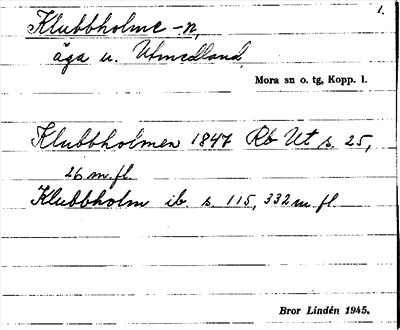 1.
Klubbholme -n,
äga u. Utmedland
Mora sn o. tg, Kopp. l.
Klubbholmen 1847 Rb Ut s. 25,
26 m. fl.
Klubbholm ib. s. 115, 332 m. fl.
Bror Lindén 1945.